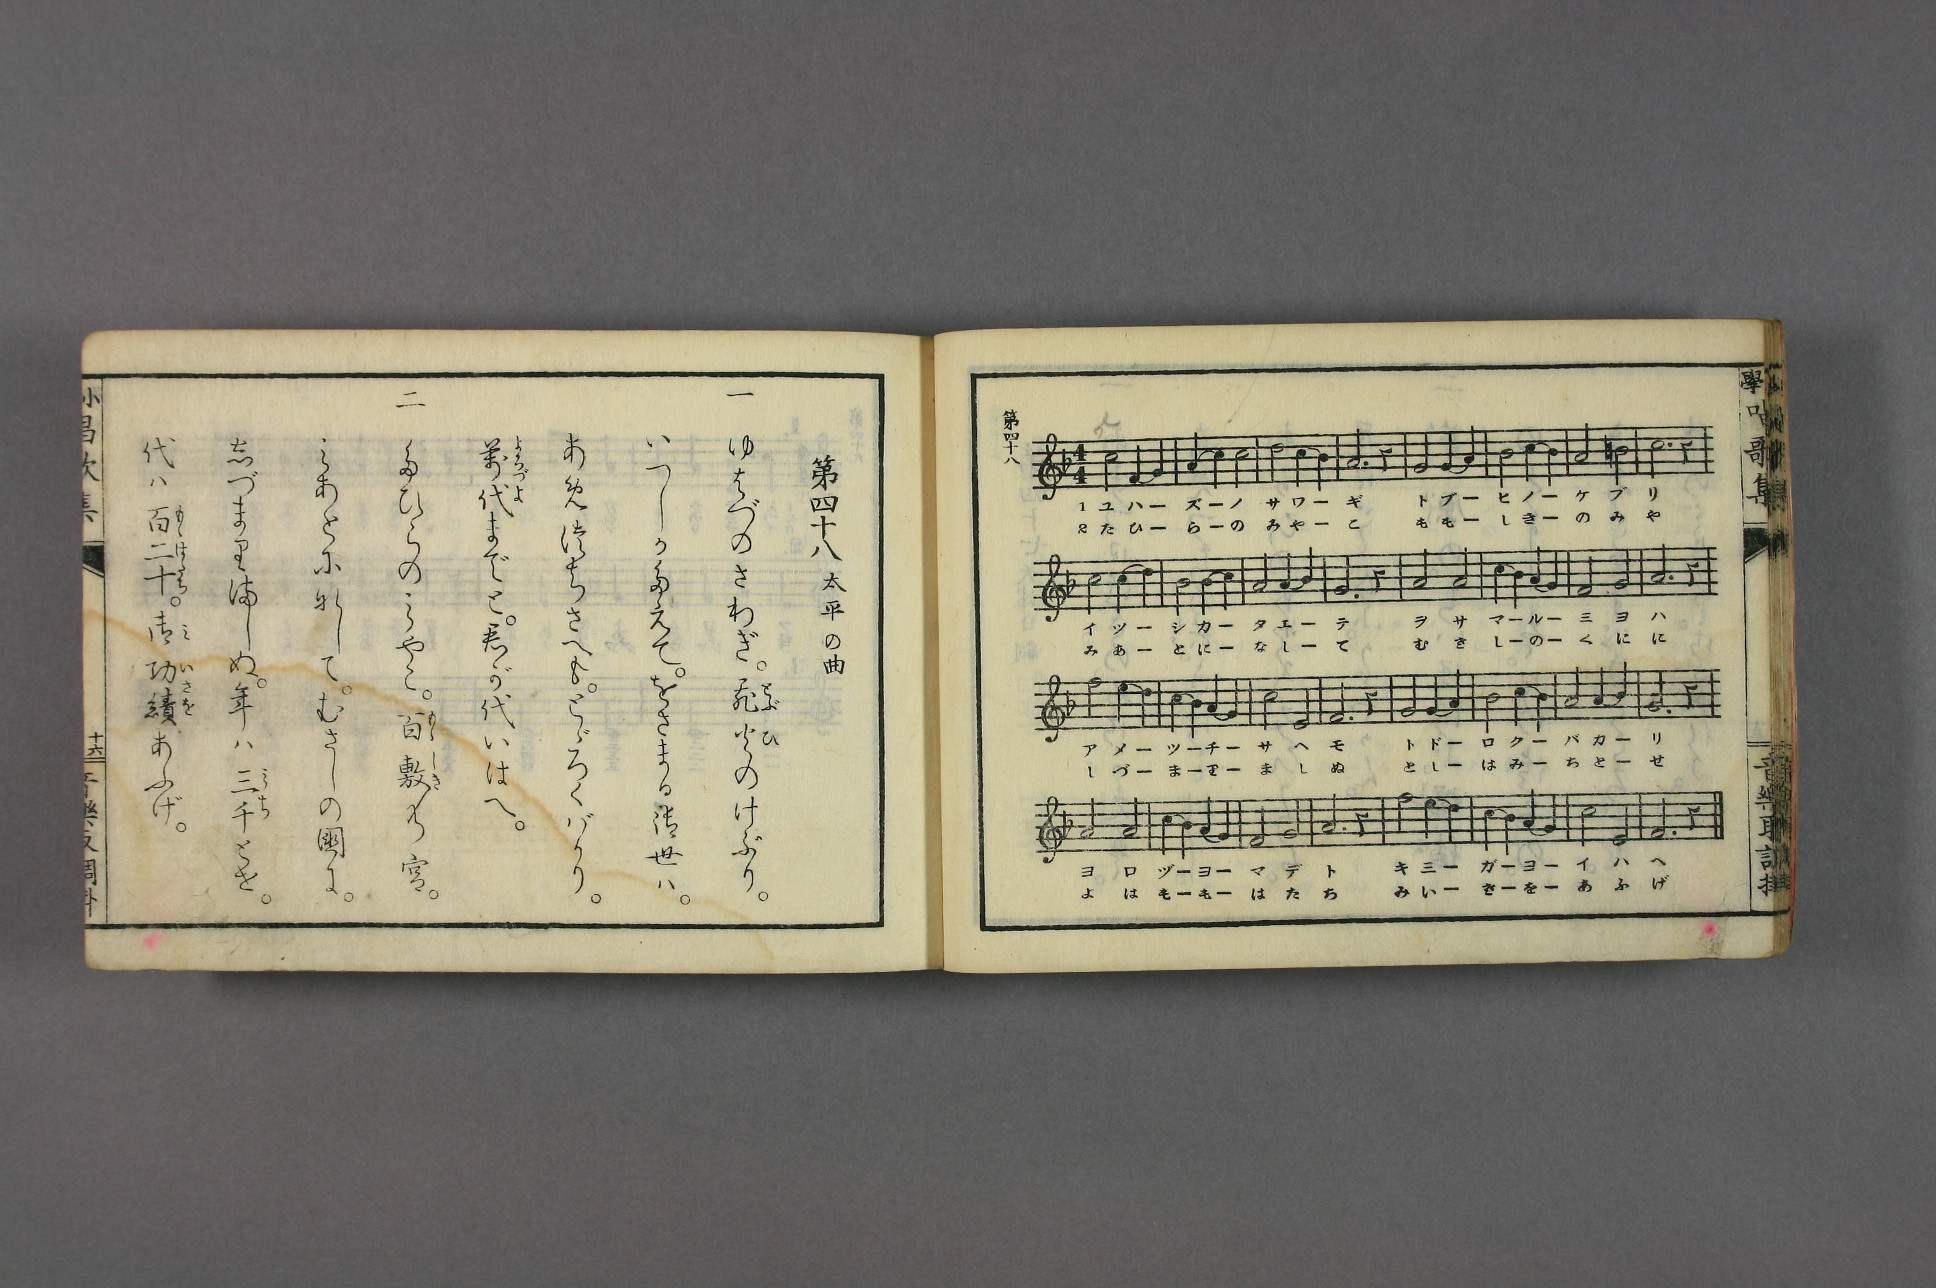 第四十八
1 ユハー ズーノ サワー ギ トブー ヒノー ケブ リ
2 たひー らーの みやー こ ももー しきー のみ や
イツー シカー タエー テ ヲサ マールー ミヨ ハ
みあー とにー なしー て むさ しーのー くに に
アメー ツーチー サヘ モ トドー ロクー バカー リ
しづー まーりー まし ぬ としー はみー ちとー せ
ヨロ ヅーヨー マデ ト キミー ガーヨー イハ ヘ
よは もーもー はた ち みいー さーをー あふ げ
第四十八 太平の曲
一 ゆはづのさわぎ。飛火のけぶり。
いつしか多えて。をさまる御世ハ。
あめ津ちさへも。とゞろくバかり。
萬代までと。君が代いはへ。
二 多ひらのみやこ。百敷乃宮。
みあとにれして。むさしの國に。
志づまりましぬ。年ハ三千とせ。
代ハ百二十。御功績あふげ。
とぶひ
よろづよ
もゝしき
みち
もゝはたち
み いさを
十六